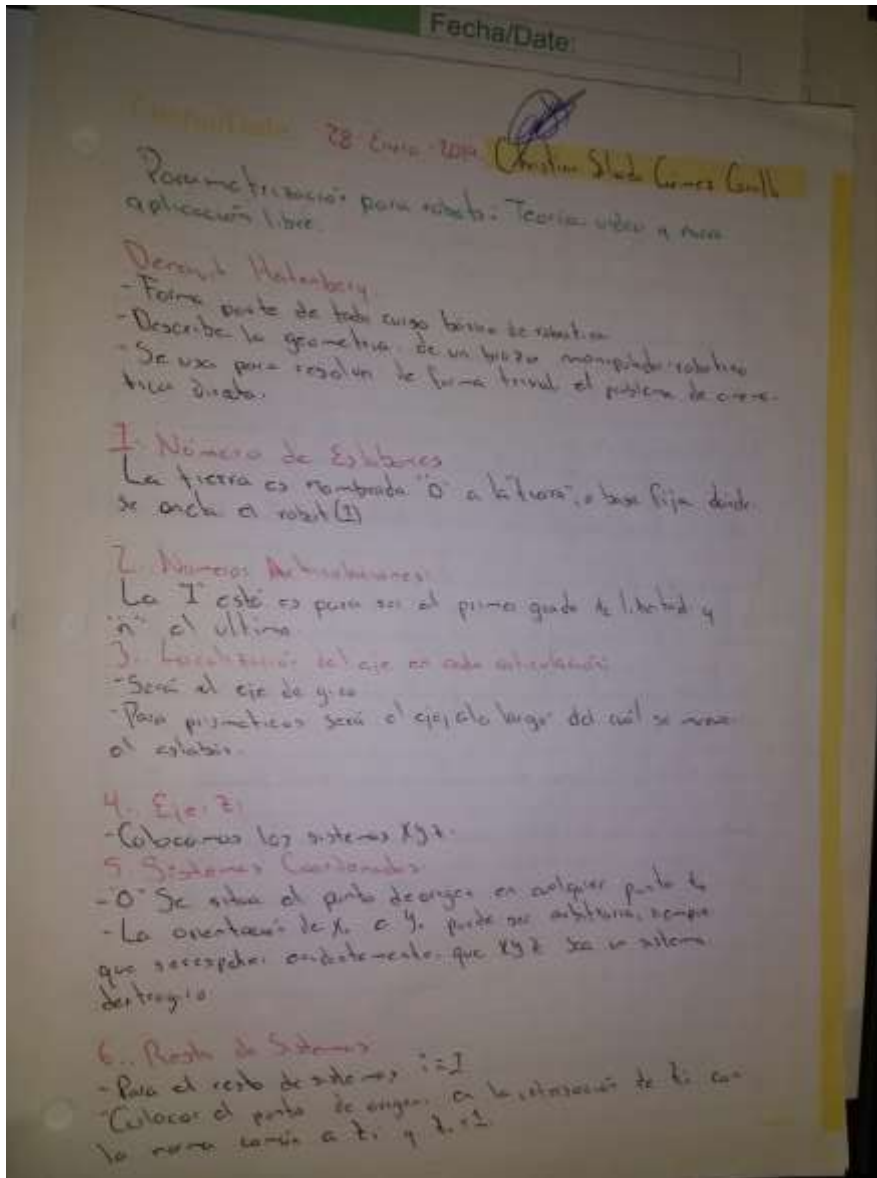 Fecha/Date:
28 Enero 2019 Christian
Parametrización para robots: Teoria video y
aplicación libre.
Denavit Hatenberg.
- Forma parte de todo curso básico de robotica
- Describe la geometria de un brazo manipulador robotico
- Se usa para resolver de forma trivial el problema de cinema-
tica directa.
1. Número de Eslabones
La tierra es nombrada "0" a la tierra", o base fija donde
se ancla el robot (1)
2. Numeros Articulaciones:
La "1" esté es para ser el primer grado de libertad y
"n" el ultimo
3. Localización del eje en cada articulación:
- Será el eje de giro
- Para prismaticos será el eje, a lo largo del cuál se mueve
el eslabón.
4. Eje Zi
- Colocamos los sistemas xyz.
5. Sistemas Coordenados
- "0" Se situa el punto de origen en cualquier punto
- La orientación de X. e Y. puede ser arbitraria, siempre
que que xyz sea un sistema
dextrogiro
6. Resto de Sistemas
- Para el resto de sistemas i=1
- Colocar el punto de origen en la intersección de Zi con
la norma común a Zi y